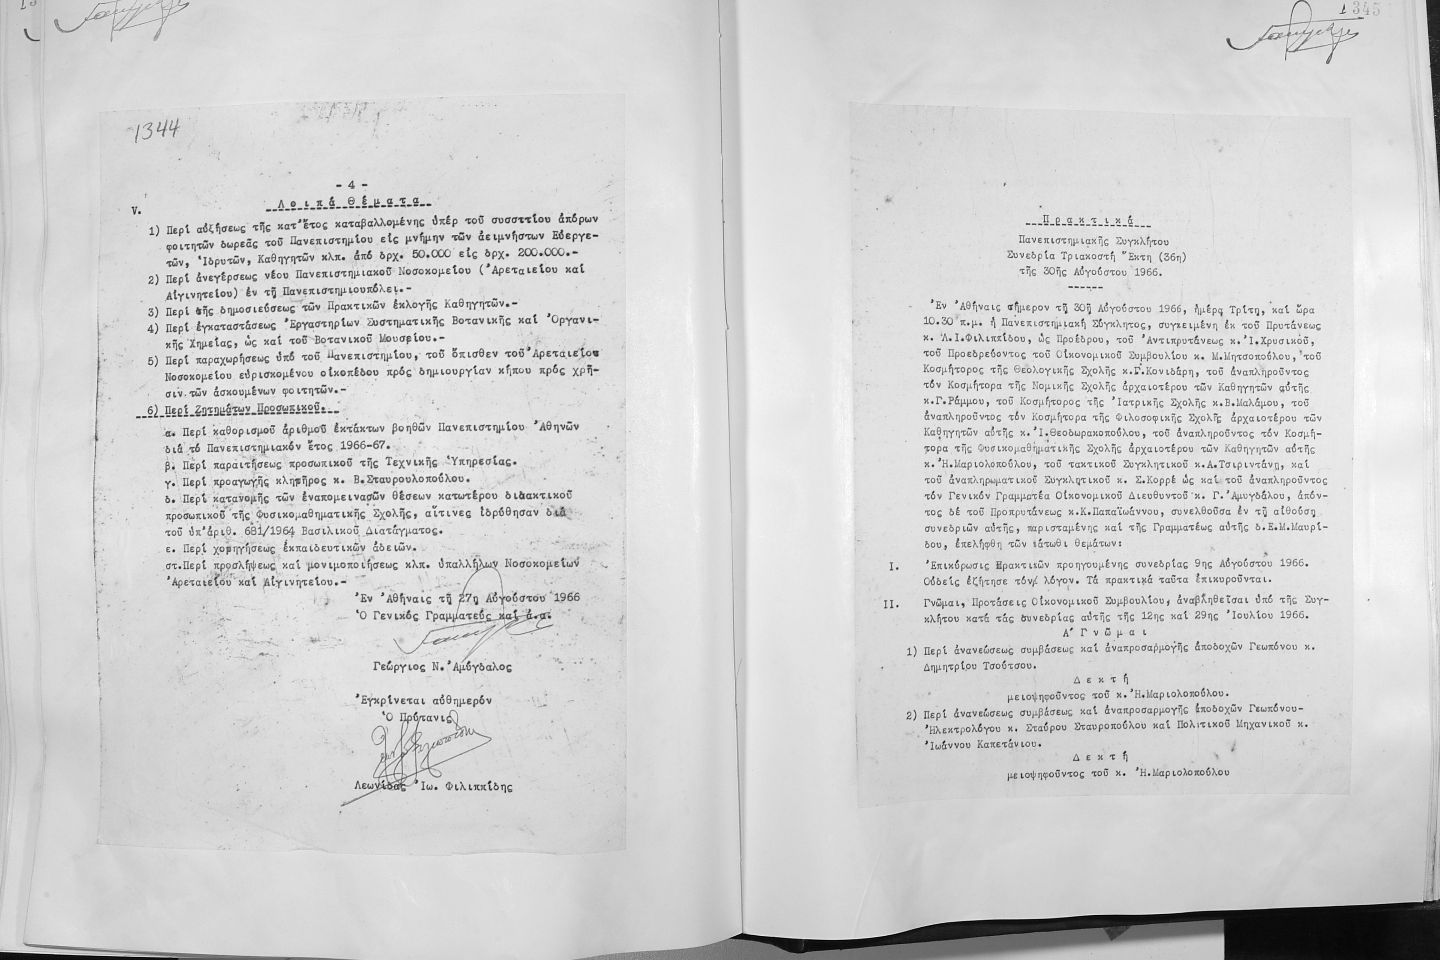 1344
- 4 -
V. Λοιπά Θέματα
1) Περί αὐξήσεως τῆς κατ'ἔτος καταβαλλομένης ὑπέρ τοῦ συσσιτίου ἀπόρων
φοιτητῶν δωρεᾶς τοῦ Πανεπιστημίου εἰς μνήμην τῶν ἀειμνήστων Εὐεργε-
τῶν, Ἱδρυτῶν, Καθηγητῶν κλπ. ἀπό δρχ. 50.000 εἰς δρχ. 200.000.-
2) Περί ἀνεγέρσεως νέου Πανεπιστημιακοῦ Νοσοκομείου (Ἀρεταιείου καί
Αἰγινητείου) ἐν τῇ Πανεπιστημιουπόλει.-
3) Περί τῆς δημοσιεύσεως τῶν Πρακτικῶν ἐκλογῆς Καθηγητῶν.-
4) Περί ἐγκαταστάσεως Ἐργαστηρίων Συστηματικῆς Βοτανικῆς καί Ὀργανι-
κῆς Χημείας, ὡς καί τοῦ Βοτανικοῦ Μουσείου.-
5) Περί παραχωρήσεως ὑπό τοῦ Πανεπιστημίου, τοῦ ὄπισθεν τοῦ Ἀρεταιείου
Νοσοκομείου εὑρισκομένου οἰκοπέδου πρός δημιουργίαν κήπου πρός χρῆ-
σιν τῶν ἀσκουμένων φοιτητῶν.-
6) Περί Ζητημάτων Προσωπικοῦ.
α. Περί καθορισμοῦ ἀριθμοῦ ἐκτάκτων βοηθῶν Πανεπιστημίου Ἀθηνῶν
διά τό Πανεπιστημιακόν ἔτος 1966-67.
β. Περί παραιτήσεως προσωπικοῦ τῆς Τεχνικῆς Ὑπηρεσίας.
γ. Περί προαγωγῆς κλητῆρος κ. Β.Σταυρουλοπούλου.
δ. Περί κατανομῆς τῶν ἐναπομεινασῶν θέσεων κατωτέρου διδακτικοῦ
προσωπικοῦ τῆς Φυσικομαθηματικῆς Σχολῆς, αἵτινες ἱδρύθησαν διά
τοῦ ὑπ'ἀριθ. 681/1964 Βασιλικοῦ Διατάγματος.
ε. Περί χορηγήσεως ἐκπαιδευτικῶν ἀδειῶν.
στ.Περί προσλήψεως καί μονιμοποιήσεως κλπ. ὑπαλλήλων Νοσοκομείων
Ἀρεταιείου καί Αἰγινητείου.-
Ἐν Ἀθήναις τῇ 27ῃ Αὐγούστου 1966
Ὁ Γενικός Γραμματεύς καί ἀ.α.
Γεώργιος Ν. Ἀμύγδαλος
Ἐγκρίνεται αὐθημερόν
Ὁ Πρύτανις
Λεωνίδας Ἰω. Φιλιππίδης
1345
Πρακτικά
Πανεπιστημιακῆς Συγκλήτου
Συνεδρία Τριακοστή Ἕκτη (36η)
τῆς 30ῆς Αὐγούστου 1966.
Ἐν Ἀθήναις σήμερον τῇ 30ῇ Αὐγούστου 1966, ἡμέρᾳ Τρίτῃ, καί ὥρᾳ
10.30 π.μ. ἡ Πανεπιστημιακή Σύγκλητος, συγκειμένη ἐκ τοῦ Πρυτάνεως
κ. Λ.Ι.Φιλιππίδου, ὡς Προέδρου, τοῦ Ἀντιπρυτάνεως κ.Ἰ.Χρυσικοῦ,
τοῦ Προεδρεύοντος τοῦ Οἰκονομικοῦ Συμβουλίου κ. Μ.Μητσοπούλου, τοῦ
Κοσμήτορος τῆς Θεολογικῆς Σχολῆς κ.Γ.Κονιδάρη, τοῦ ἀναπληροῦντος
τόν Κοσμήτορα τῆς Νομικῆς Σχολῆς ἀρχαιοτέρου τῶν Καθηγητῶν αὐτῆς
κ.Γ.Ράμμου, τοῦ Κοσμήτορος τῆς Ἰατρικῆς Σχολῆς κ.Β.Μαλάμου, τοῦ
ἀναπληροῦντος τόν Κοσμήτορα τῆς Φιλοσοφικῆς Σχολῆς ἀρχαιοτέρου τῶν
Καθηγητῶν αὐτῆς κ.Ἰ.Θεοδωρακοπούλου, τοῦ ἀναπληροῦντος τόν Κοσμή-
τορα τῆς Φυσικομαθηματικῆς Σχολῆς ἀρχαιοτέρου τῶν Καθηγητῶν αὐτῆς
κ.Ἠ.Μαριολοπούλου, τοῦ τακτικοῦ Συγκλητικοῦ κ.Α.Τσιριντάνη, καί
τοῦ ἀναπληρωματικοῦ Συγκλητικοῦ κ.Σ.Κορρέ ὡς καί τοῦ ἀναπληροῦντος
τόν Γενικόν Γραμματέα Οἰκονομικοῦ Διευθυντοῦ κ. Γ.Ἀμυγδάλου, ἀπόν-
τος δέ τοῦ Προπρυτάνεως κ.Κ.Παπαϊωάννου, συνελθοῦσα ἐν τῇ αἰθούσῃ
συνεδριῶν αὐτῆς, παρισταμένης καί τῆς Γραμματέως αὐτῆς δ.Ε.Μ.Μαυρί-
δου, ἐπελήφθη τῶν κάτωθι θεμάτων:
I. Ἐπικύρωσις Πρακτικῶν προηγουμένης συνεδρίας 9ης Αὐγούστου 1966.
Οὐδείς ἐζήτησε τόν λόγον. Τά πρακτικά ταῦτα ἐπικυροῦνται.
II. Γνῶμαι, Προτάσεις Οἰκονομικοῦ Συμβουλίου, ἀναβληθεῖσαι ὑπό τῆς Συγ-
κλήτου κατά τάς συνεδρίας αὐτῆς τῆς 12ης καί 29ης Ἰουλίου 1966.
Α' Γνῶμαι
1) Περί ἀνανεώσεως συμβάσεως καί ἀναπροσαρμογῆς ἀποδοχῶν Γεωπόνου κ.
Δημητρίου Τσούτσου.
Δεκτή
μειοψηφοῦντος τοῦ κ.Ἠ.Μαριολοπούλου.
2) Περί ἀνανεώσεως συμβάσεως καί ἀναπροσαρμογῆς ἀποδοχῶν Γεωπόνου-
Ἠλεκτρολόγου κ. Σταύρου Σταυροπούλου καί Πολιτικοῦ Μηχανικοῦ κ.
Ἰωάννου Καπετάνιου.
Δεκτή
μειοψηφοῦντος τοῦ κ. Ἠ.Μαριολοπούλου